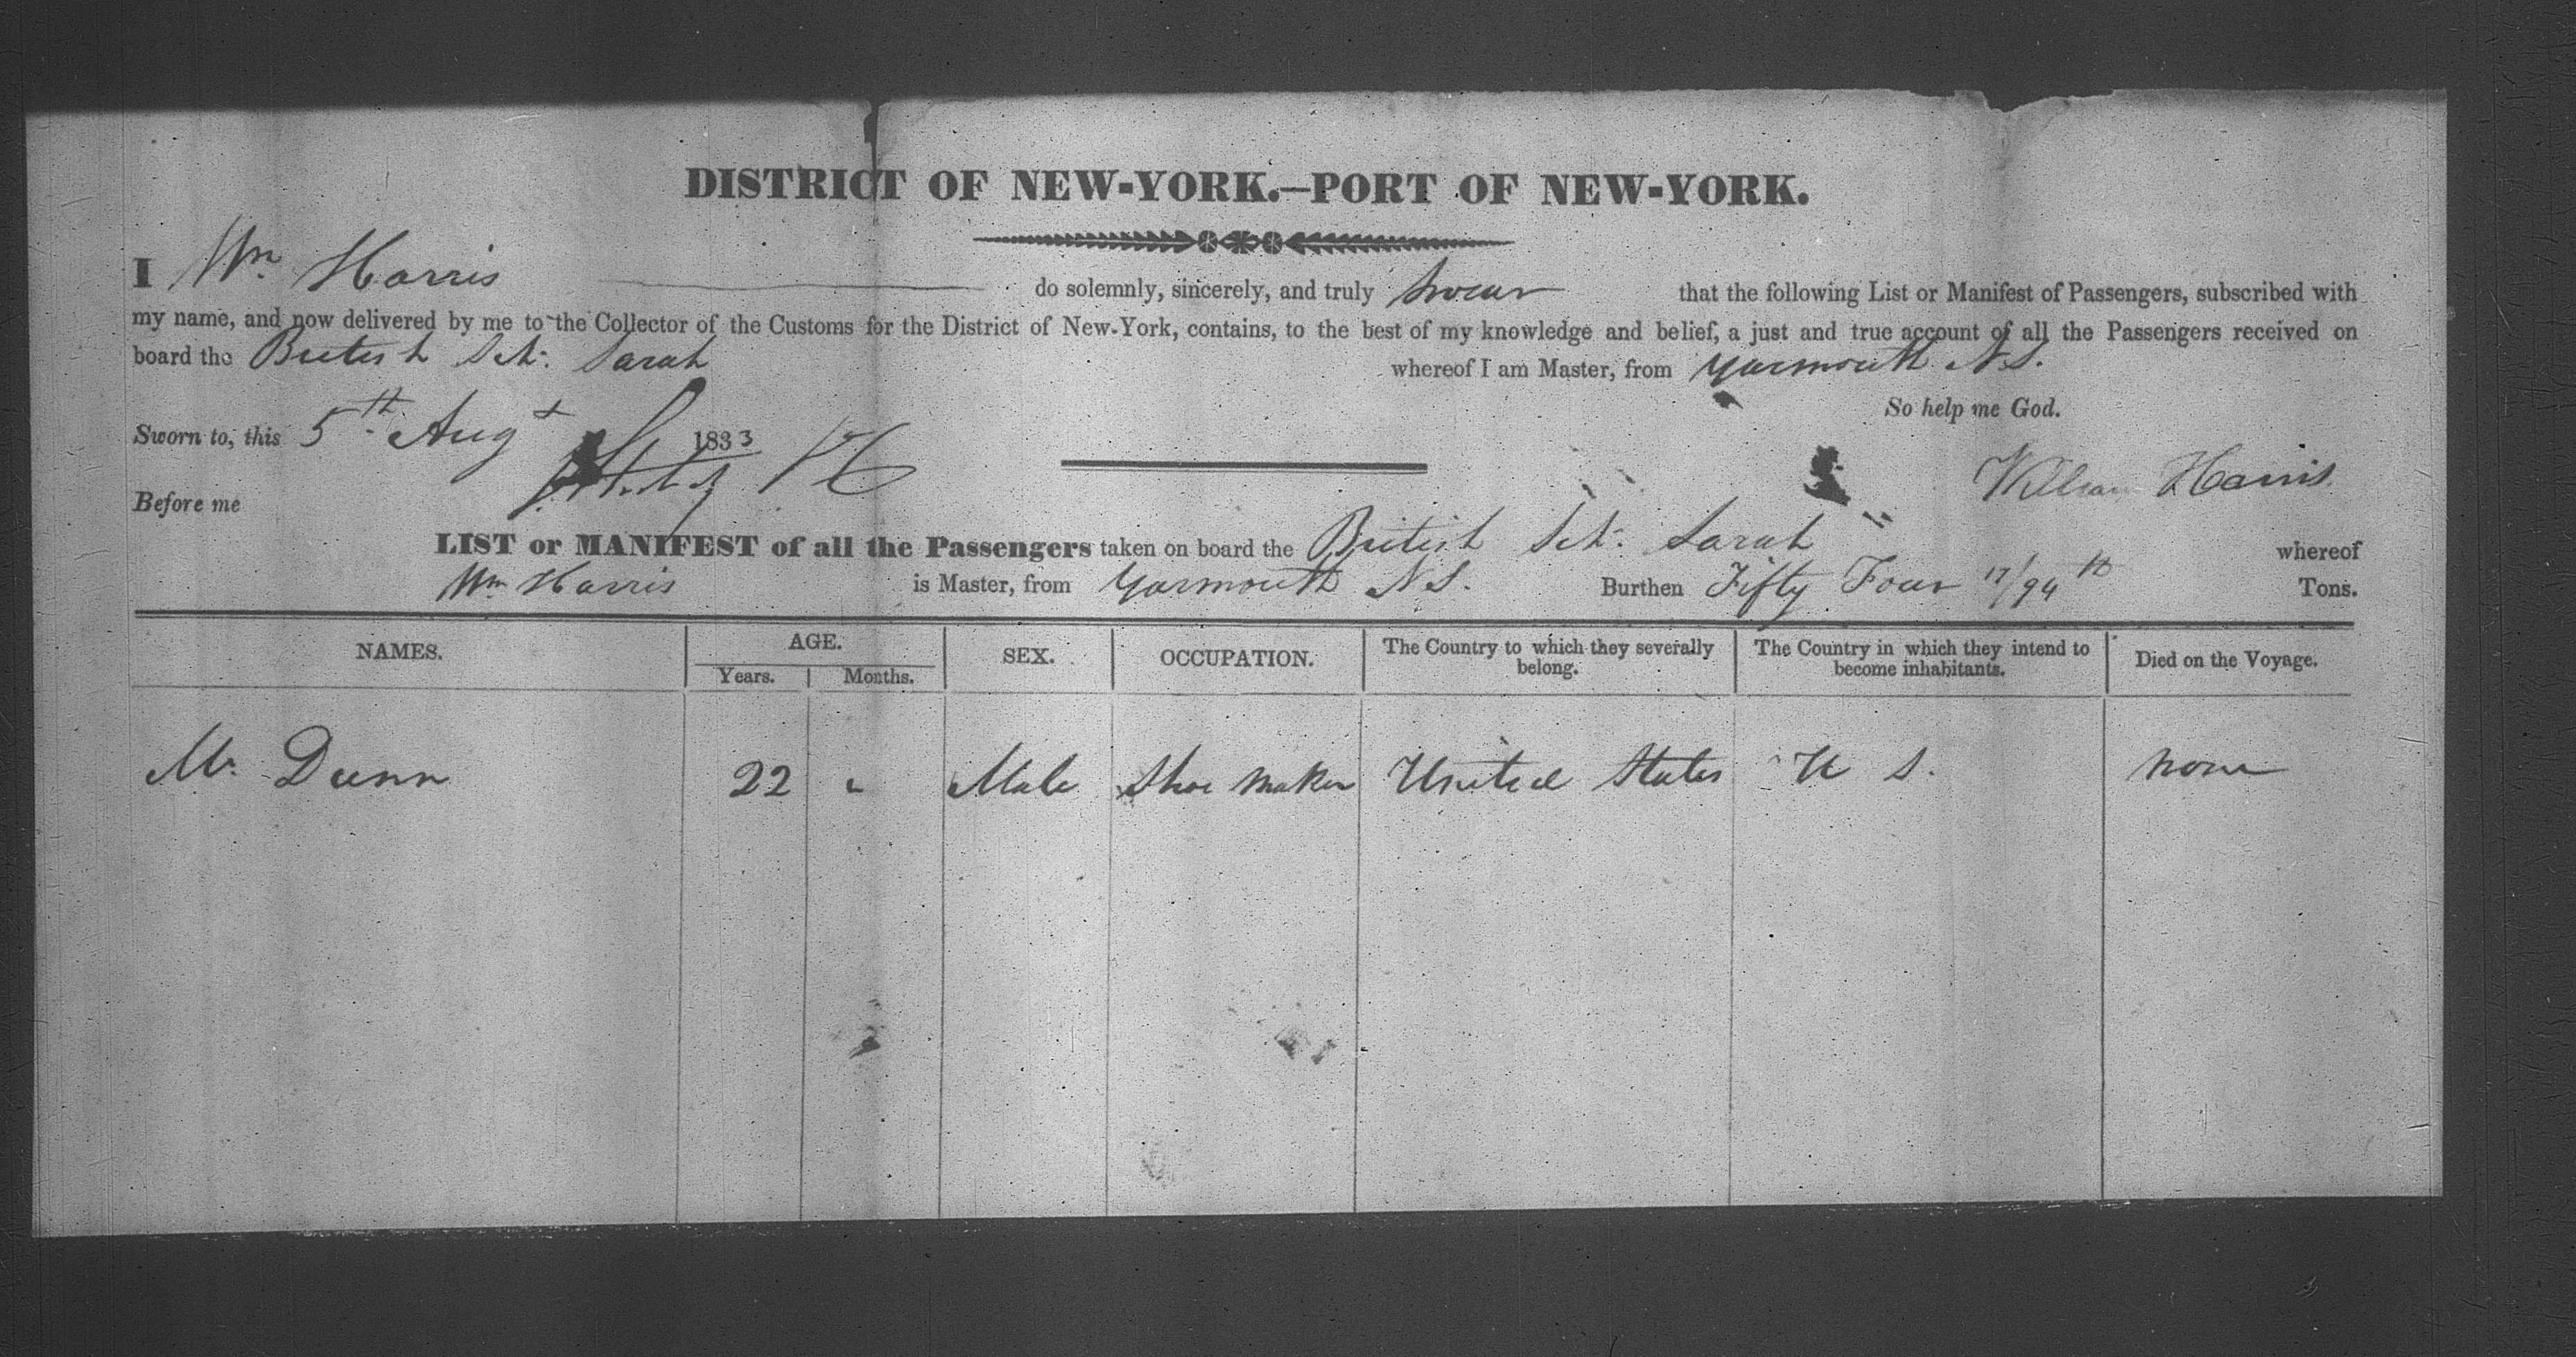 DISTRICT OF NEW-YORK.—PORT OF NEW-YORK.
I Wm Harris do solemnly, sincerely, and truly swear that the following List or Manifest of Passengers, subscribed with
my name, and now delivered by me to the Collector of the Customs for the District of New-York, contains, to the best of my knowledge and belief, a just and true account of all the Passengers received on
board the British Sch: Sarah whereof I am Master, from Yarmouth N.S.
So help me God.
Sworn to, this 5th Augt 1833
William Harris
Before me
LIST or MANIFEST of all the Passengers taken on board the British Sch: Sarah " whereof
Wm Harris is Master, from Yarmouth N.S. Burthen Fifty Four 17/94th Tons.
NAMES. AGE. SEX. OCCUPATION. The Country to which they severally belong. The Country in which they intend to become inhabitants. Died on the Voyage.
Years. Months.
Mr. Dunn 22 " Male Shoe maker United States U S. none